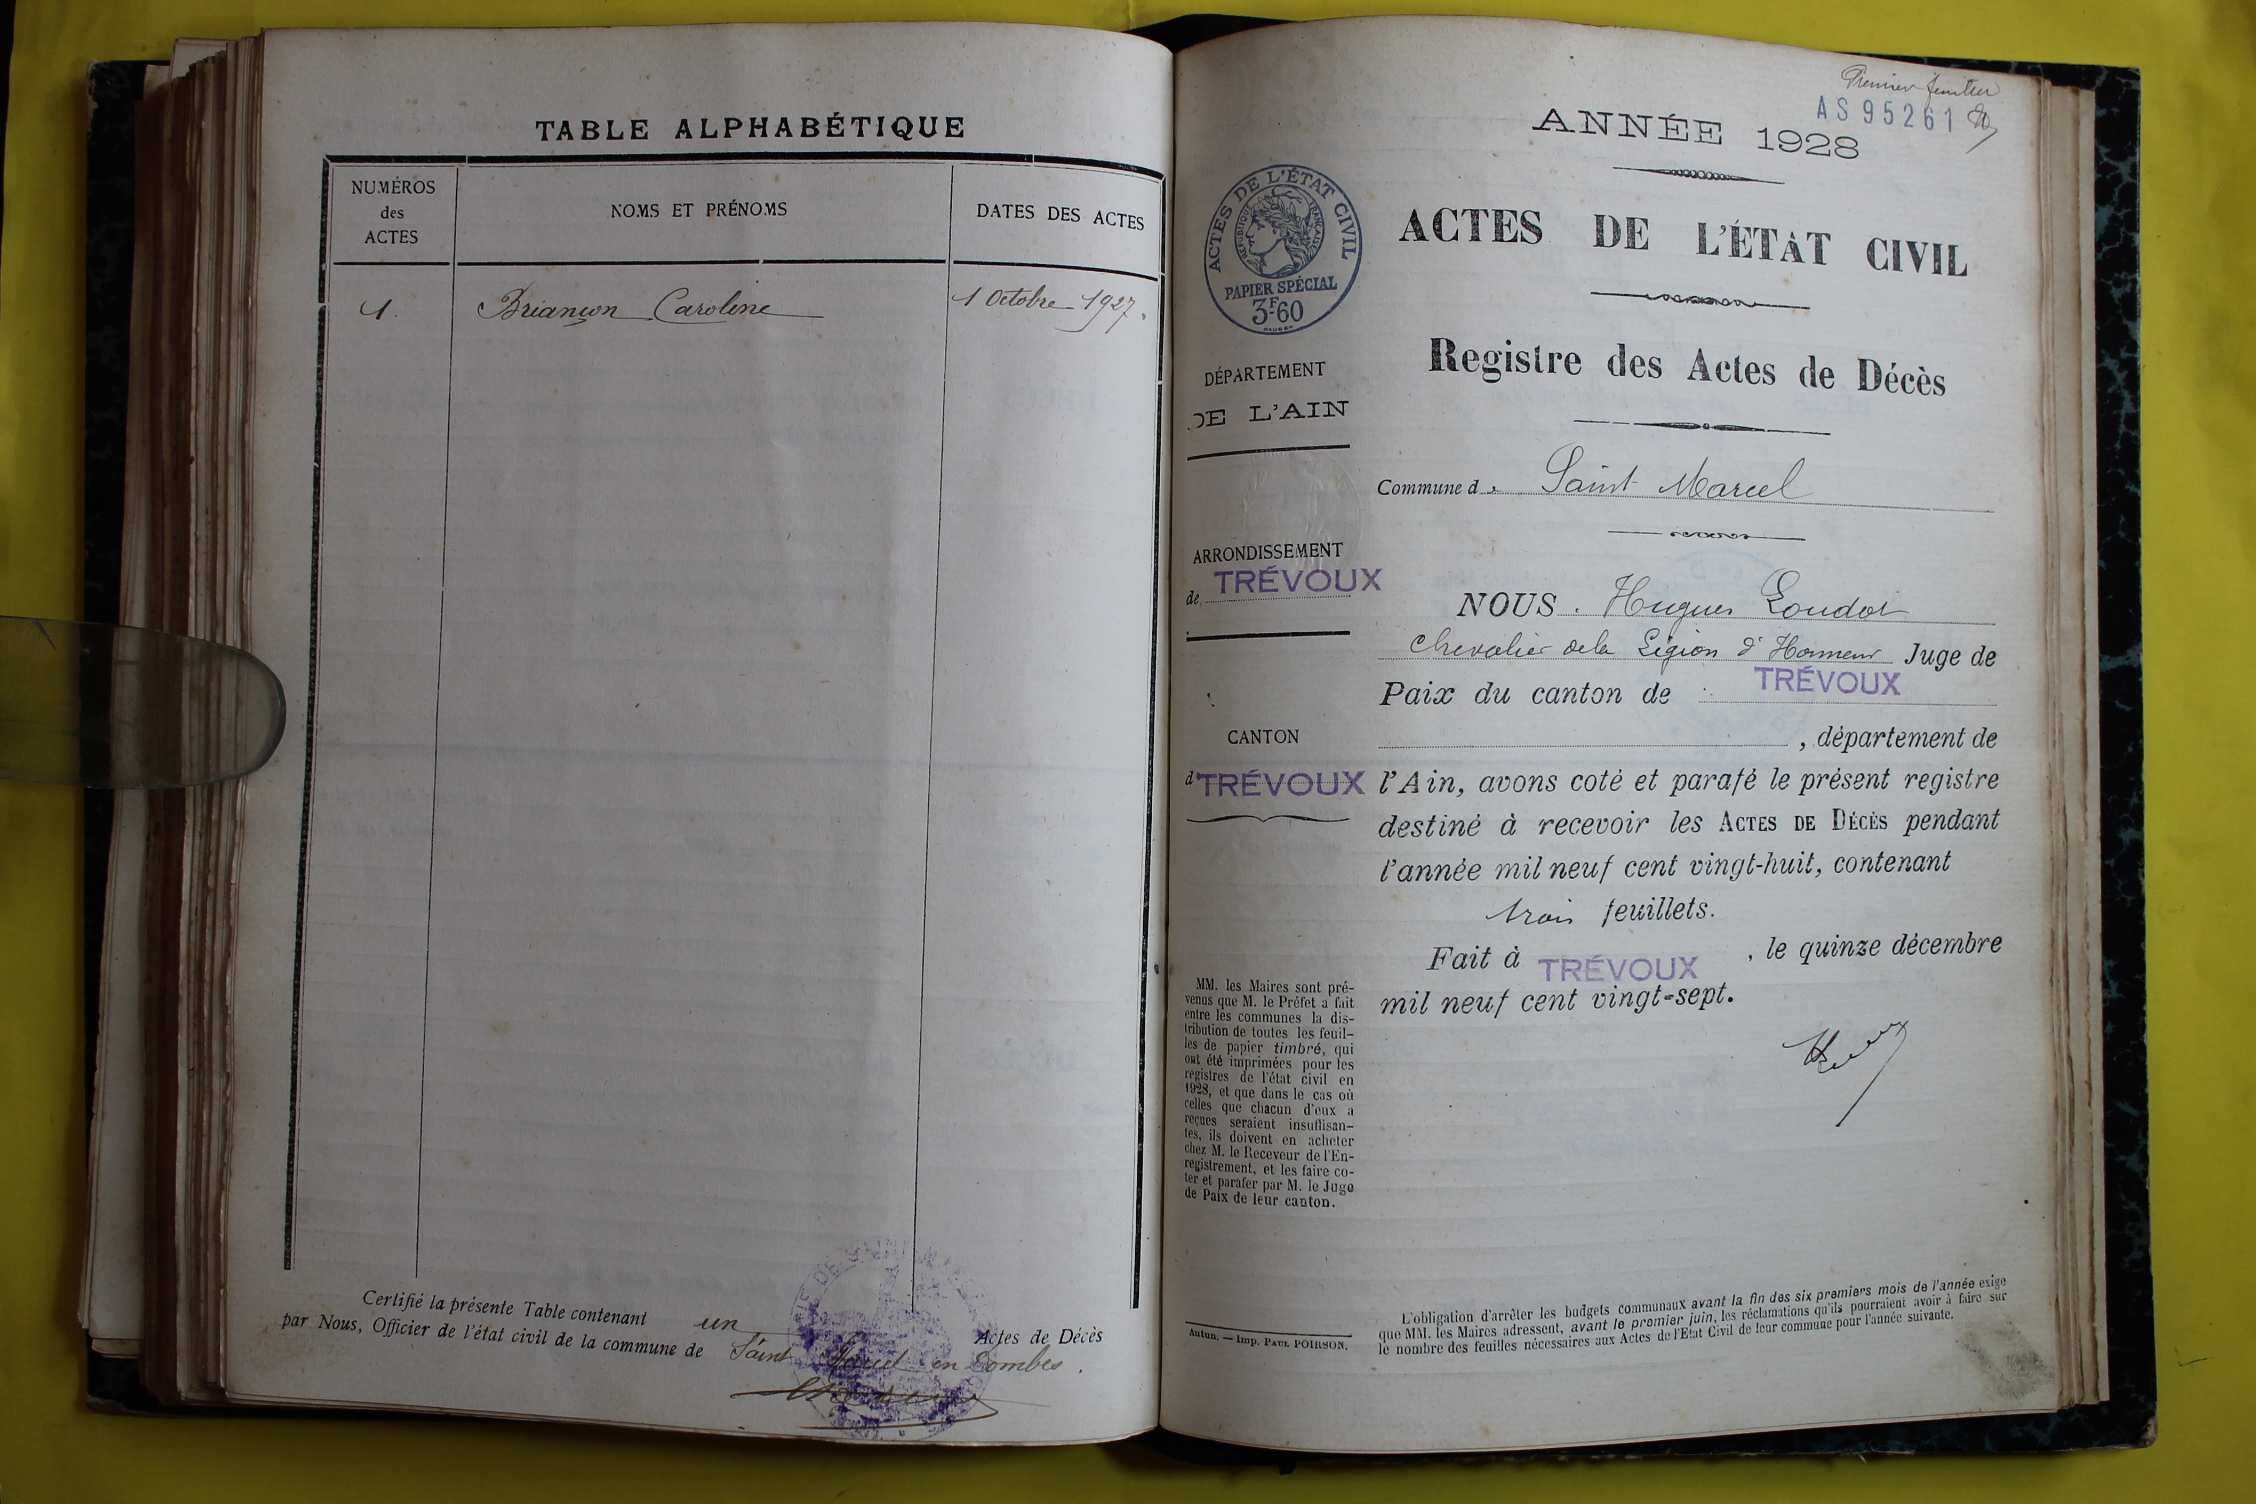 TABLE ALPHABÉTIQUE
NUMÉROS
des
ACTES
NOMS ET PRÉNOMS
DATES DES ACTES
1.
Briançon Caroline
1 Octobre 1927.
Certifié la présente Table contenant un Actes de Décès
par Nous, Officier de l'état civil de la commune de Saint Marcel en Dombes.
Premier feuillet
AS 95261
ANNÉE 1928
ACTES DE L'ÉTAT CIVIL
RÉPUBLIQUE FRANÇAISE
PAPIER SPÉCIAL
3F.60
ACTES DE L'ÉTAT CIVIL
Registre des Actes de Décès
DÉPARTEMENT
DE L'AIN
Commune de Saint Marcel
ARRONDISSEMENT
de TRÉVOUX
CANTON
d TRÉVOUX
NOUS. Hugues Loudot
Chevalier de la Légion d'Honneur Juge de
Paix du canton de TRÉVOUX
, département de
l'Ain, avons coté et parafé le présent registre
destiné à recevoir les ACTES DE DÉCÈS pendant
l'année mil neuf cent vingt-huit, contenant
trois feuillets.
Fait à TRÉVOUX, le quinze décembre
mil neuf cent vingt-sept.
MM. les Maires sont pré-
venus que M. le Préfet a fait
entre les communes la dis-
tribution de toutes les feuil-
les de papier timbré, qui
ont été imprimées pour les
registres de l'état civil en
1928, et que dans le cas où
celles que chacun d'eux a
reçues seraient insuffisan-
tes, ils doivent en acheter
chez M. le Receveur de l'En-
registrement, et les faire co-
ter et parafer par M. le Juge
de Paix de leur canton.
Autun. — Imp. PAUL POIRSON.
L'obligation d'arrêter les budgets communaux avant la fin des six premiers mois de l'année exige
que MM. les Maires adressent, avant le premier juin, les réclamations qu'ils pourraient avoir à faire sur
le nombre des feuilles nécessaires aux Actes de l'Etat Civil de leur commune pour l'année suivante.